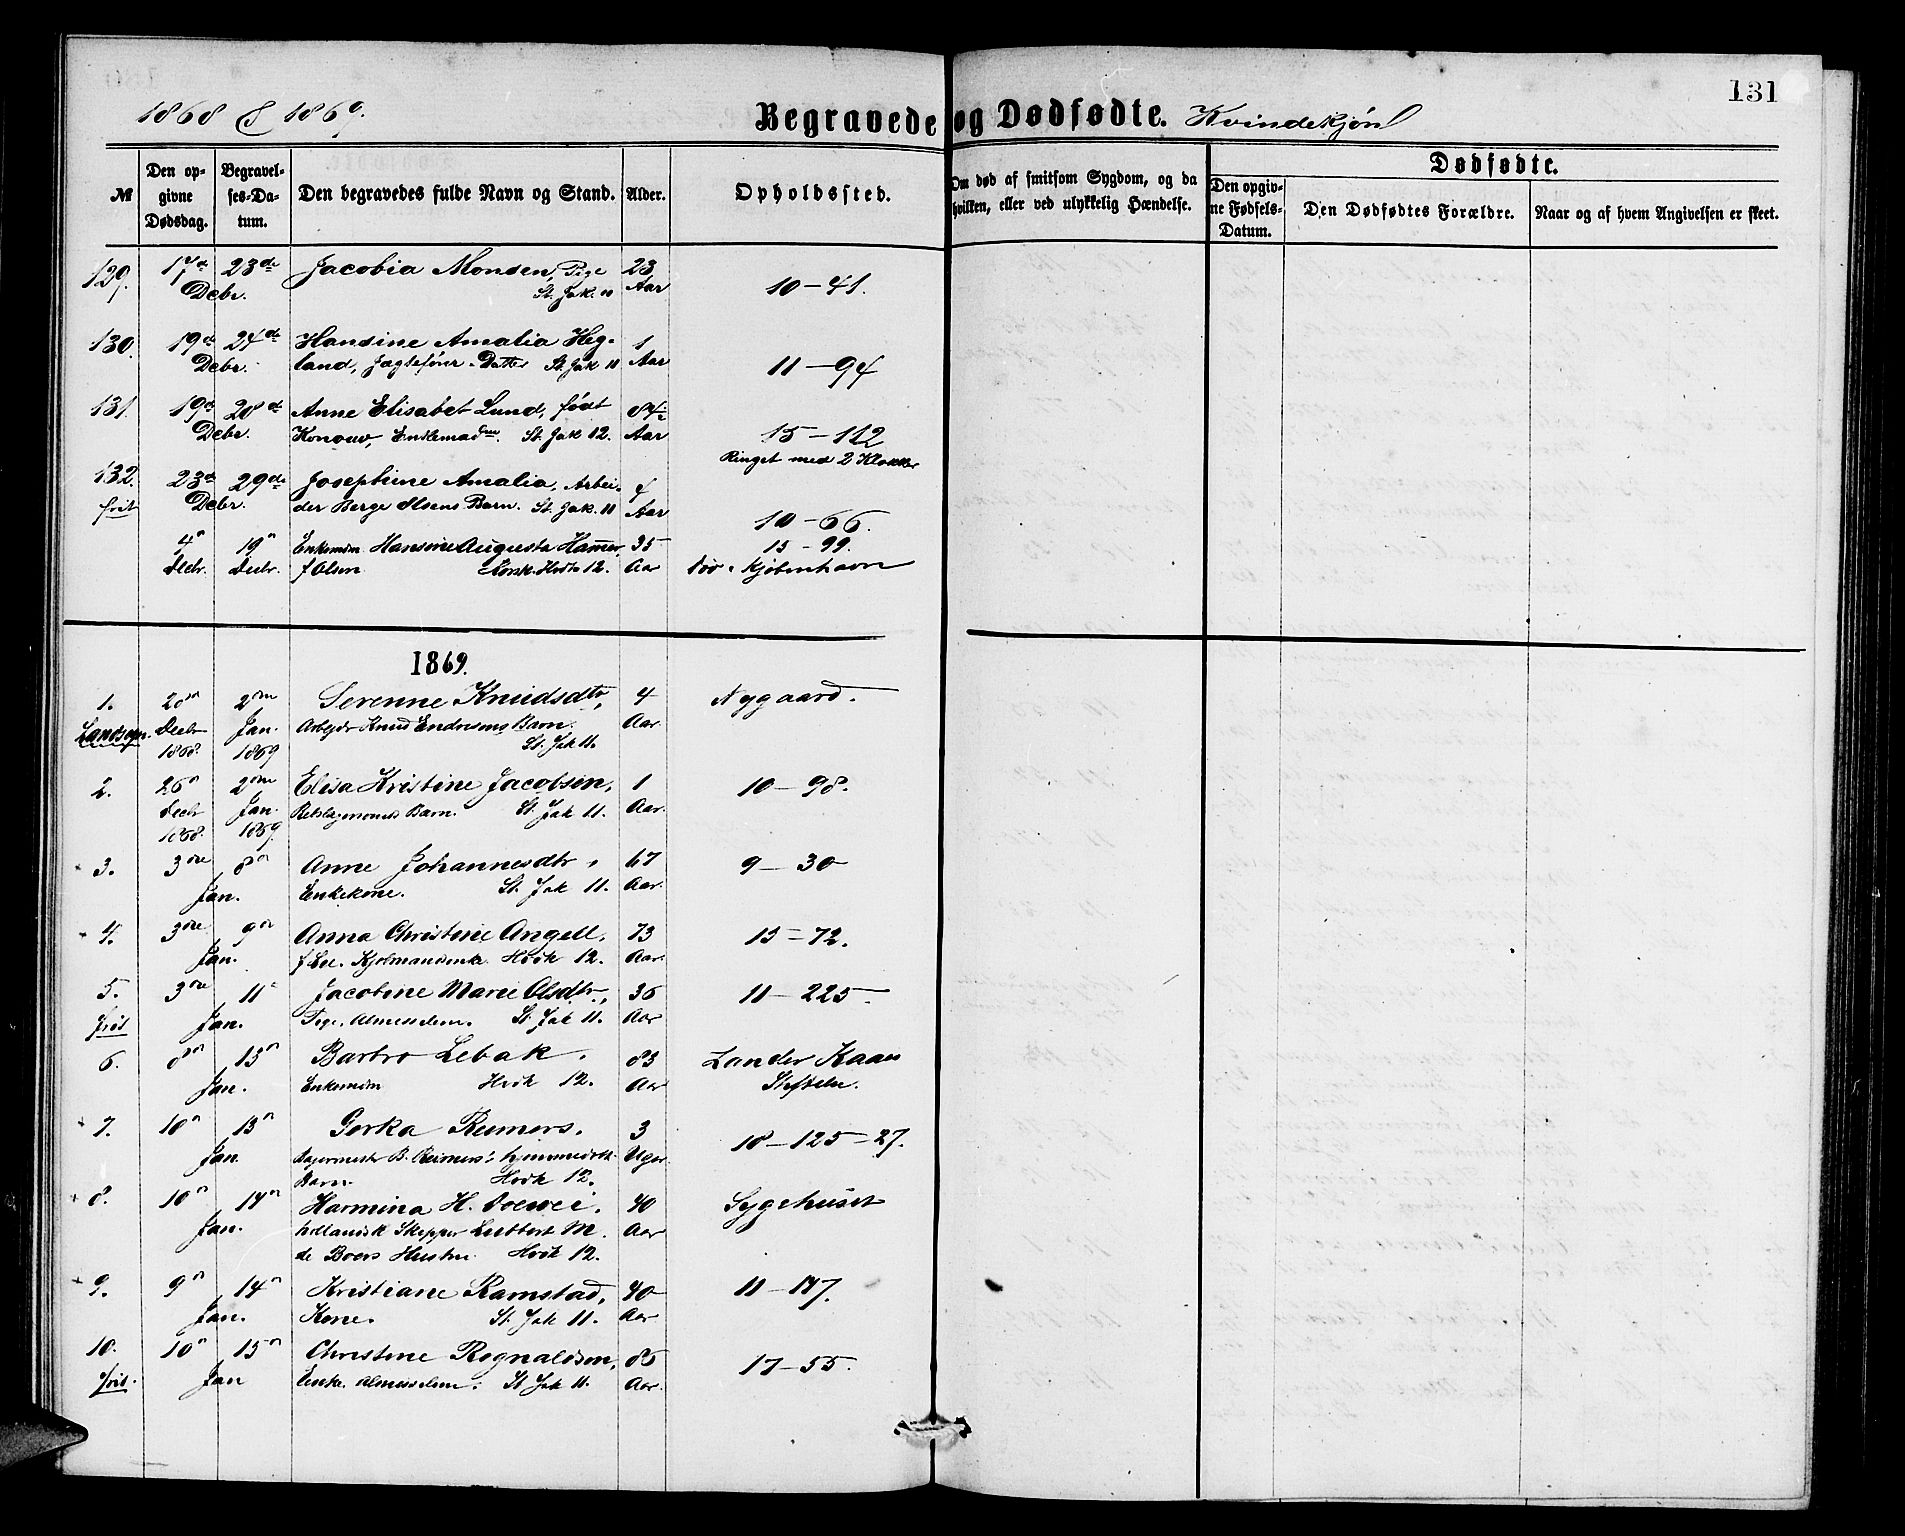 131
1868 & 1869.
Begravede og Dødfødte. Kvindekjøn
№
Den opgivne Dødsdag.
Begravelses-Datum.
Den begravedes fulde Navn og Stand.
Alder.
Opholdssted.
Om død af smitsom Sygdom, og da hvilken, eller ved ulykkelig Hændelse.
Dødfødte.
Den opgivne Fødsels-Datum.
Den Dødfødtes Forældre.
Naar og af hvem Angivelsen er skeet.
129. 17de 23de Jacobia Monsen, Pige 23
Debr. St. Jak. 11 Aar 10-41.
130. 19de 24de Hansine Amalia Heg- 1
Debr. land, Jagtefører-Datter St. Jak 11 Aar 11-94
131. 19de 28de Anne Elisabet Lund, født 84
Debr. Konow, St. Jak 12. Aar 15-112
Ringet med 2 Klokker
132. 23de 29de Josephine Amalia, Arbei-
frit Debr. der Berge Olsens Barn. St. Jak. 11 Aar 10-66.
4de 19de Enkemdm Hansine Augusta Hamer, 35 15-99.
Decbr. Decbr. f Olsen Korsk. Hvdk 12. Aar Kjøbenhavn
1869.
1. 20de 2den Serenne Knudsdtr, 4 Nygaard.
Landsogn. Decbr Jan. Arbeider Knud Endresens Barn. Aar.
1868. 1869 St. Jak 11.
2. 26de 2den Elisa Kristine Jacobsen, 1 10-98.
Decbr Jan. Rebslagersvends Barn. St. Jak 11. Aar.
1868. 1869.
3. 3die 8de Anne Johannesdtr, 67 9-30
Jan. Enkekone. St. Jak 11. Aar.
4. 3die 9de Anna Christine Angell, 73 15-72.
Jan. Hvdk 12. Aar.
5. 3die 11te Jacobine Marie Olsdtr, 36 11-225.
frit Jan. Pige, Almisselem. St. Jak 11. Aar
6. 8de 13de Barbro Lebak, 83 Zander Kaaes
Jan. Enkemdm Hvdk 12. Aar Stiftelse.
7. 10de 13de Gerka Reimers, 3 18-125-27.
Jan. B. Reimers's hjemmedøbt Uger.
Barn. Hvdk 12.
8. 10de 14de Harmina H. 40 Sygehuset
Jan. hollandsk Skipper Lubbert M. Aar
de Boers Hustru Hvdk 12.
9. 9de 14de Kristiane Ramstad, 40 11-147.
Jan. Kone. St. Jak 11. Aar
10. 10de 15de Christine Rognaldsen, 85 17-55.
frit. Jan Enke. Almisselem. St Jak 11. Aar.